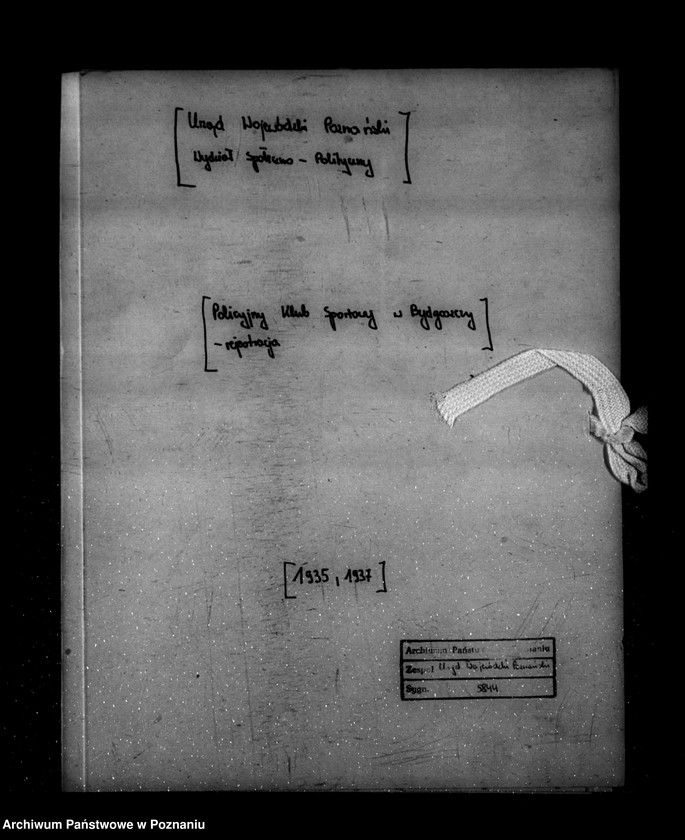 [Urząd Wojewódzki Poznański
Wydział Społeczno - Polityczny]
[Policyjny Klub Sportowy w Bydgoszczy
- rejestracja]
[1935, 1937]
Archiwum Państw naniu
Zespół Urząd Wojewódzki Poznański
Sygn. 5844
Archiwum Państwowe w Poznaniu